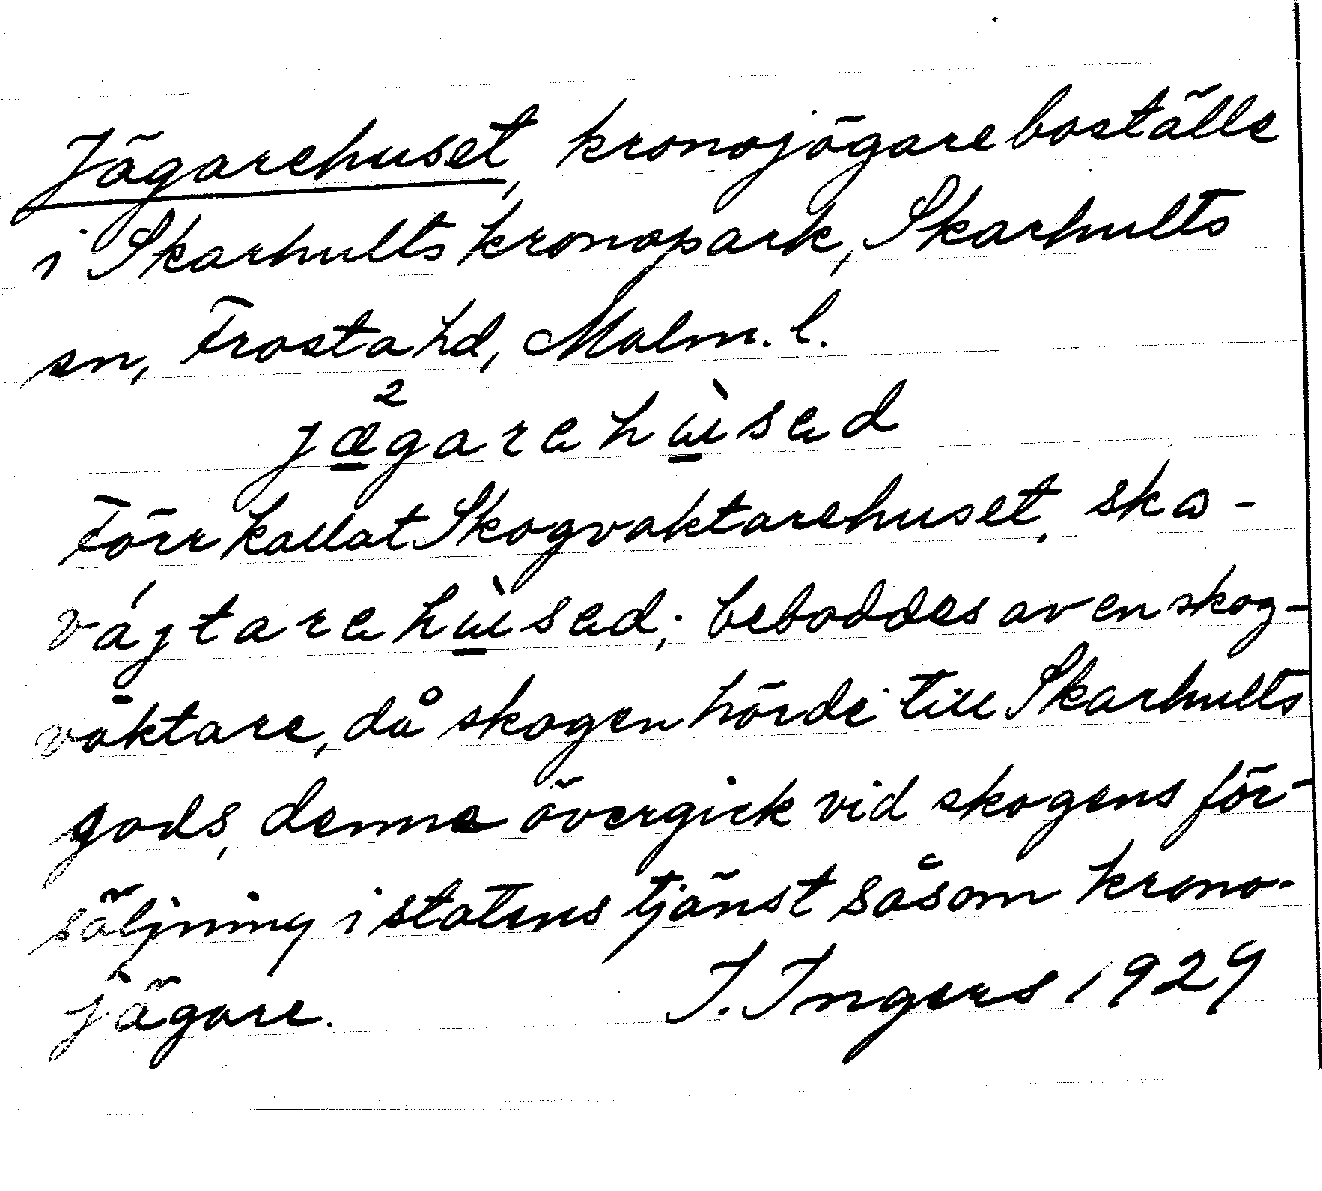 Jägarehuset, kronojägareboställe
i Skarhults kronopark, Skarhults
sn, Frosta hd, Malm. l.
jæ²garehùsed
Förr kallat Skogvaktarehuset, ska-
vájtarehùsed; beboddes av en skog-
väktare, då skogen hörde till Skarhults
gods, denne övergick vid skogens för-
säljning i statens tjänst såsom krono-
jägare. I. Ingers 1929